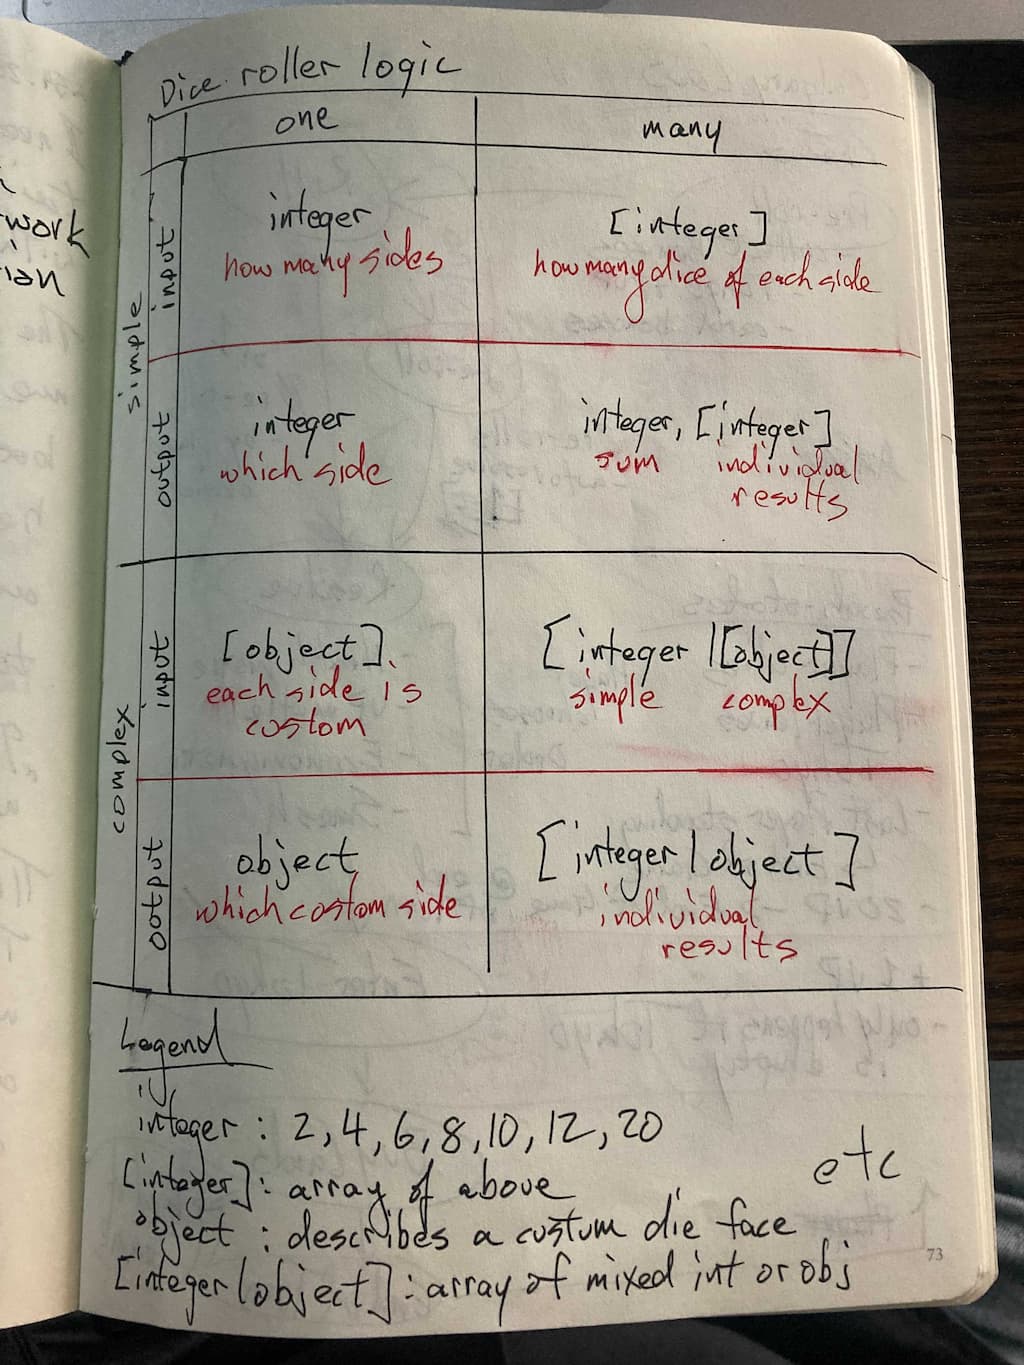 Dice roller logic
one
many
simple
input
integer
how many sides
[integer]
how many dice of each side
output
integer
which side
integer, [integer]
sum individual
results
complex
input
[object]
each side is
custom
[integer |[object]]
simple complex
output
object
which custom side
[integer | object]
individual
results
Legend
integer : 2, 4, 6, 8, 10, 12, 20
etc
[integer] : array of above
object : describes a custum die face
[integer | object] : array of mixed int or obj
73
work